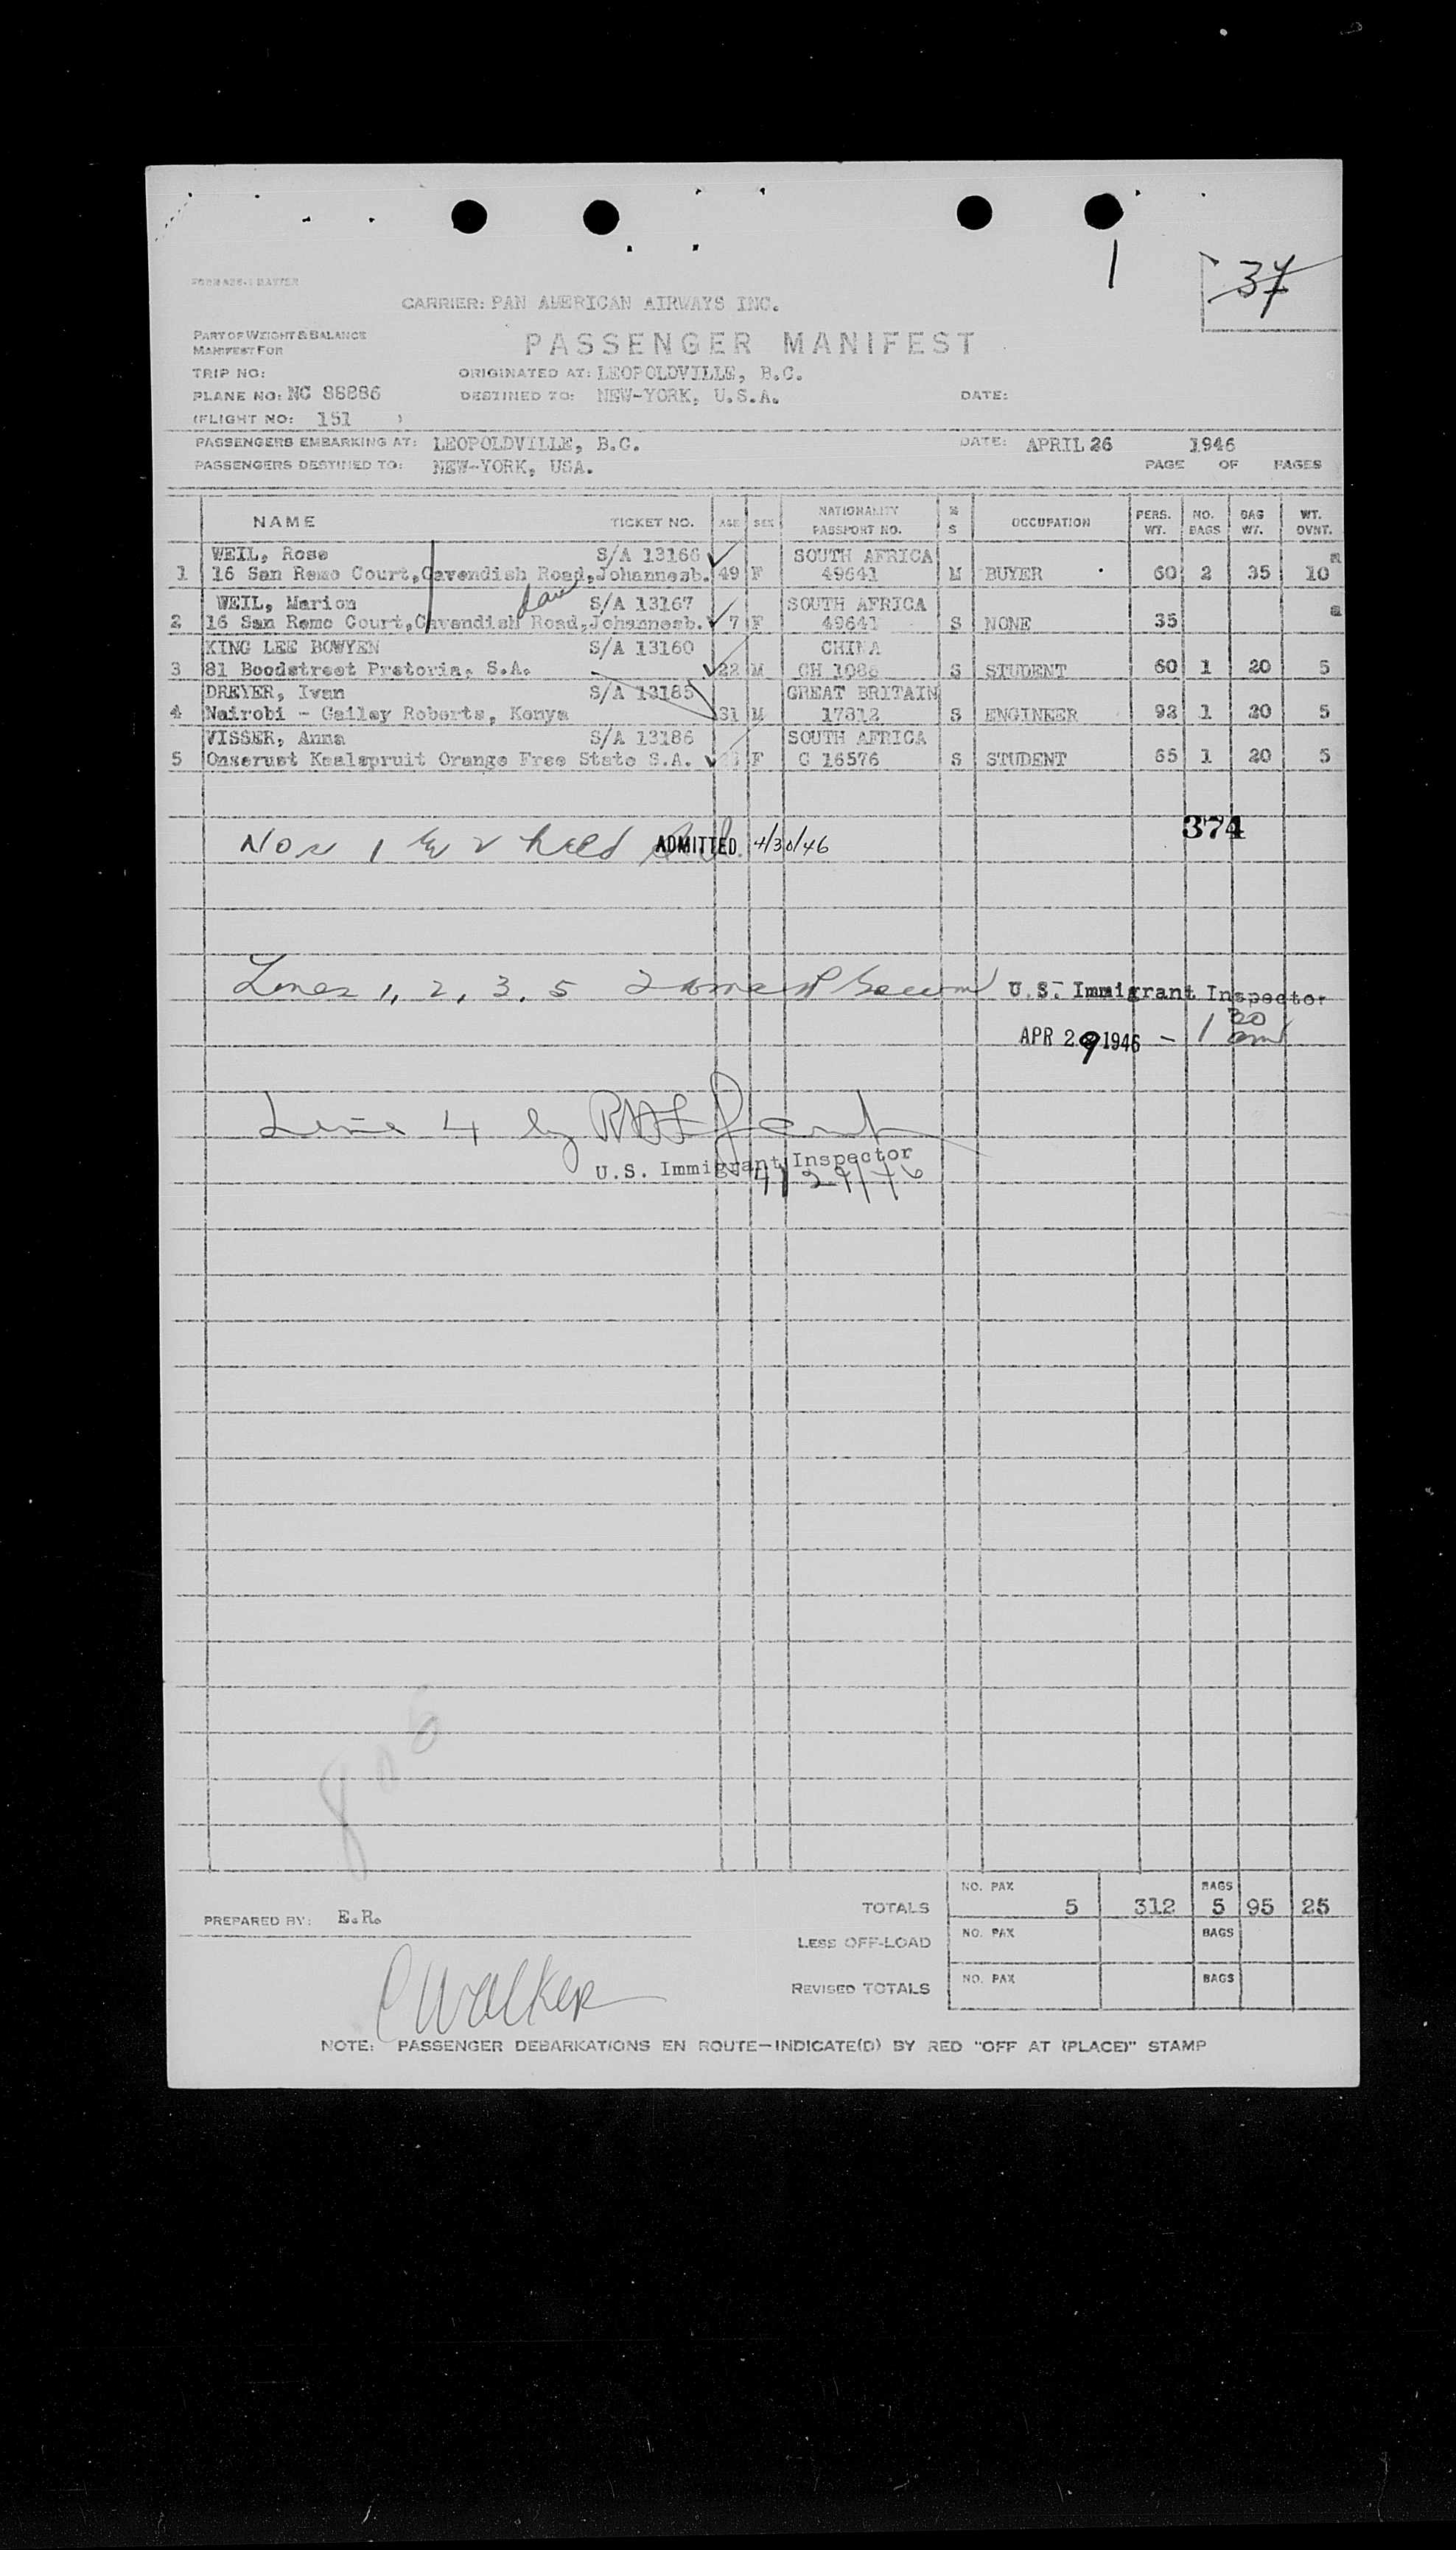 1
37
FORM 826-1 MASTER
CARRIER: PAN AMERICAN AIRWAYS INC.
PART OF WEIGHT & BALANCE
MANIFEST FOR
PASSENGER MANIFEST
TRIP NO: ORIGINATED AT: LEOPOLDVILLE, B.C.
PLANE NO: NC 88886 DESTINED TO: NEW-YORK, U.S.A. DATE:
(FLIGHT NO: 151 )
PASSENGERS EMBARKING AT: LEOPOLDVILLE, B.C. DATE: APRIL 26 1946
PASSENGERS DESTINED TO: NEW-YORK, USA. PAGE OF PAGES
NAME TICKET NO. AGE SEX NATIONALITY PASSPORT NO. M S OCCUPATION PERS. WT. NO. BAGS BAG WT. WT. OVNT.
WEIL, Rose S/A 13166 SOUTH AFRICA
1 16 San Remo Court, Cavendish Road, Johannesb. 49 F 49641 M BUYER 60 2 35 10
WEIL, Marion S/A 13167 SOUTH AFRICA
2 16 San Remo Court, Cavendish Road, Johannesb. 7 F 49641 S NONE 35
KING LEE BOWYEN S/A 13160 CHINA
3 81 Boodstreet Pretoria, S.A. 22 M CH 1086 S STUDENT 60 1 20 5
DREYER, Ivan S/A 13185 GREAT BRITAIN
4 Nairobi - Gailey Roberts, Kenya 31 M 17812 S ENGINEER 92 1 20 5
VISSER, Anna S/A 13186 SOUTH AFRICA
5 Onserust Kaalspruit Orange Free State S.A. F C 16576 S STUDENT 65 1 20 5
374
Nos 1 & 2 held ADMITTED 4/30/46
Lines 1, 2, 3, 5 U.S. Immigrant Inspector
APR 29 1946 - 1 30 am
Line 4 by
U.S. Immigrant Inspector
4/29/46
NO. PAX BAGS
TOTALS 5 312 5 95 25
PREPARED BY: E.R.
LESS OFF-LOAD NO. PAX BAGS
REVISED TOTALS NO. PAX BAGS
C Walker
NOTE: PASSENGER DEBARKATIONS EN ROUTE—INDICATE(D) BY RED "OFF AT (PLACE)" STAMP